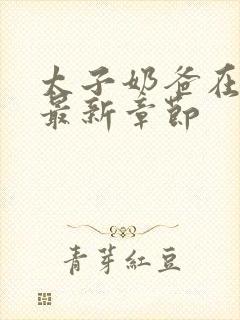 太子奶爸在
最新章節
青芽紅豆